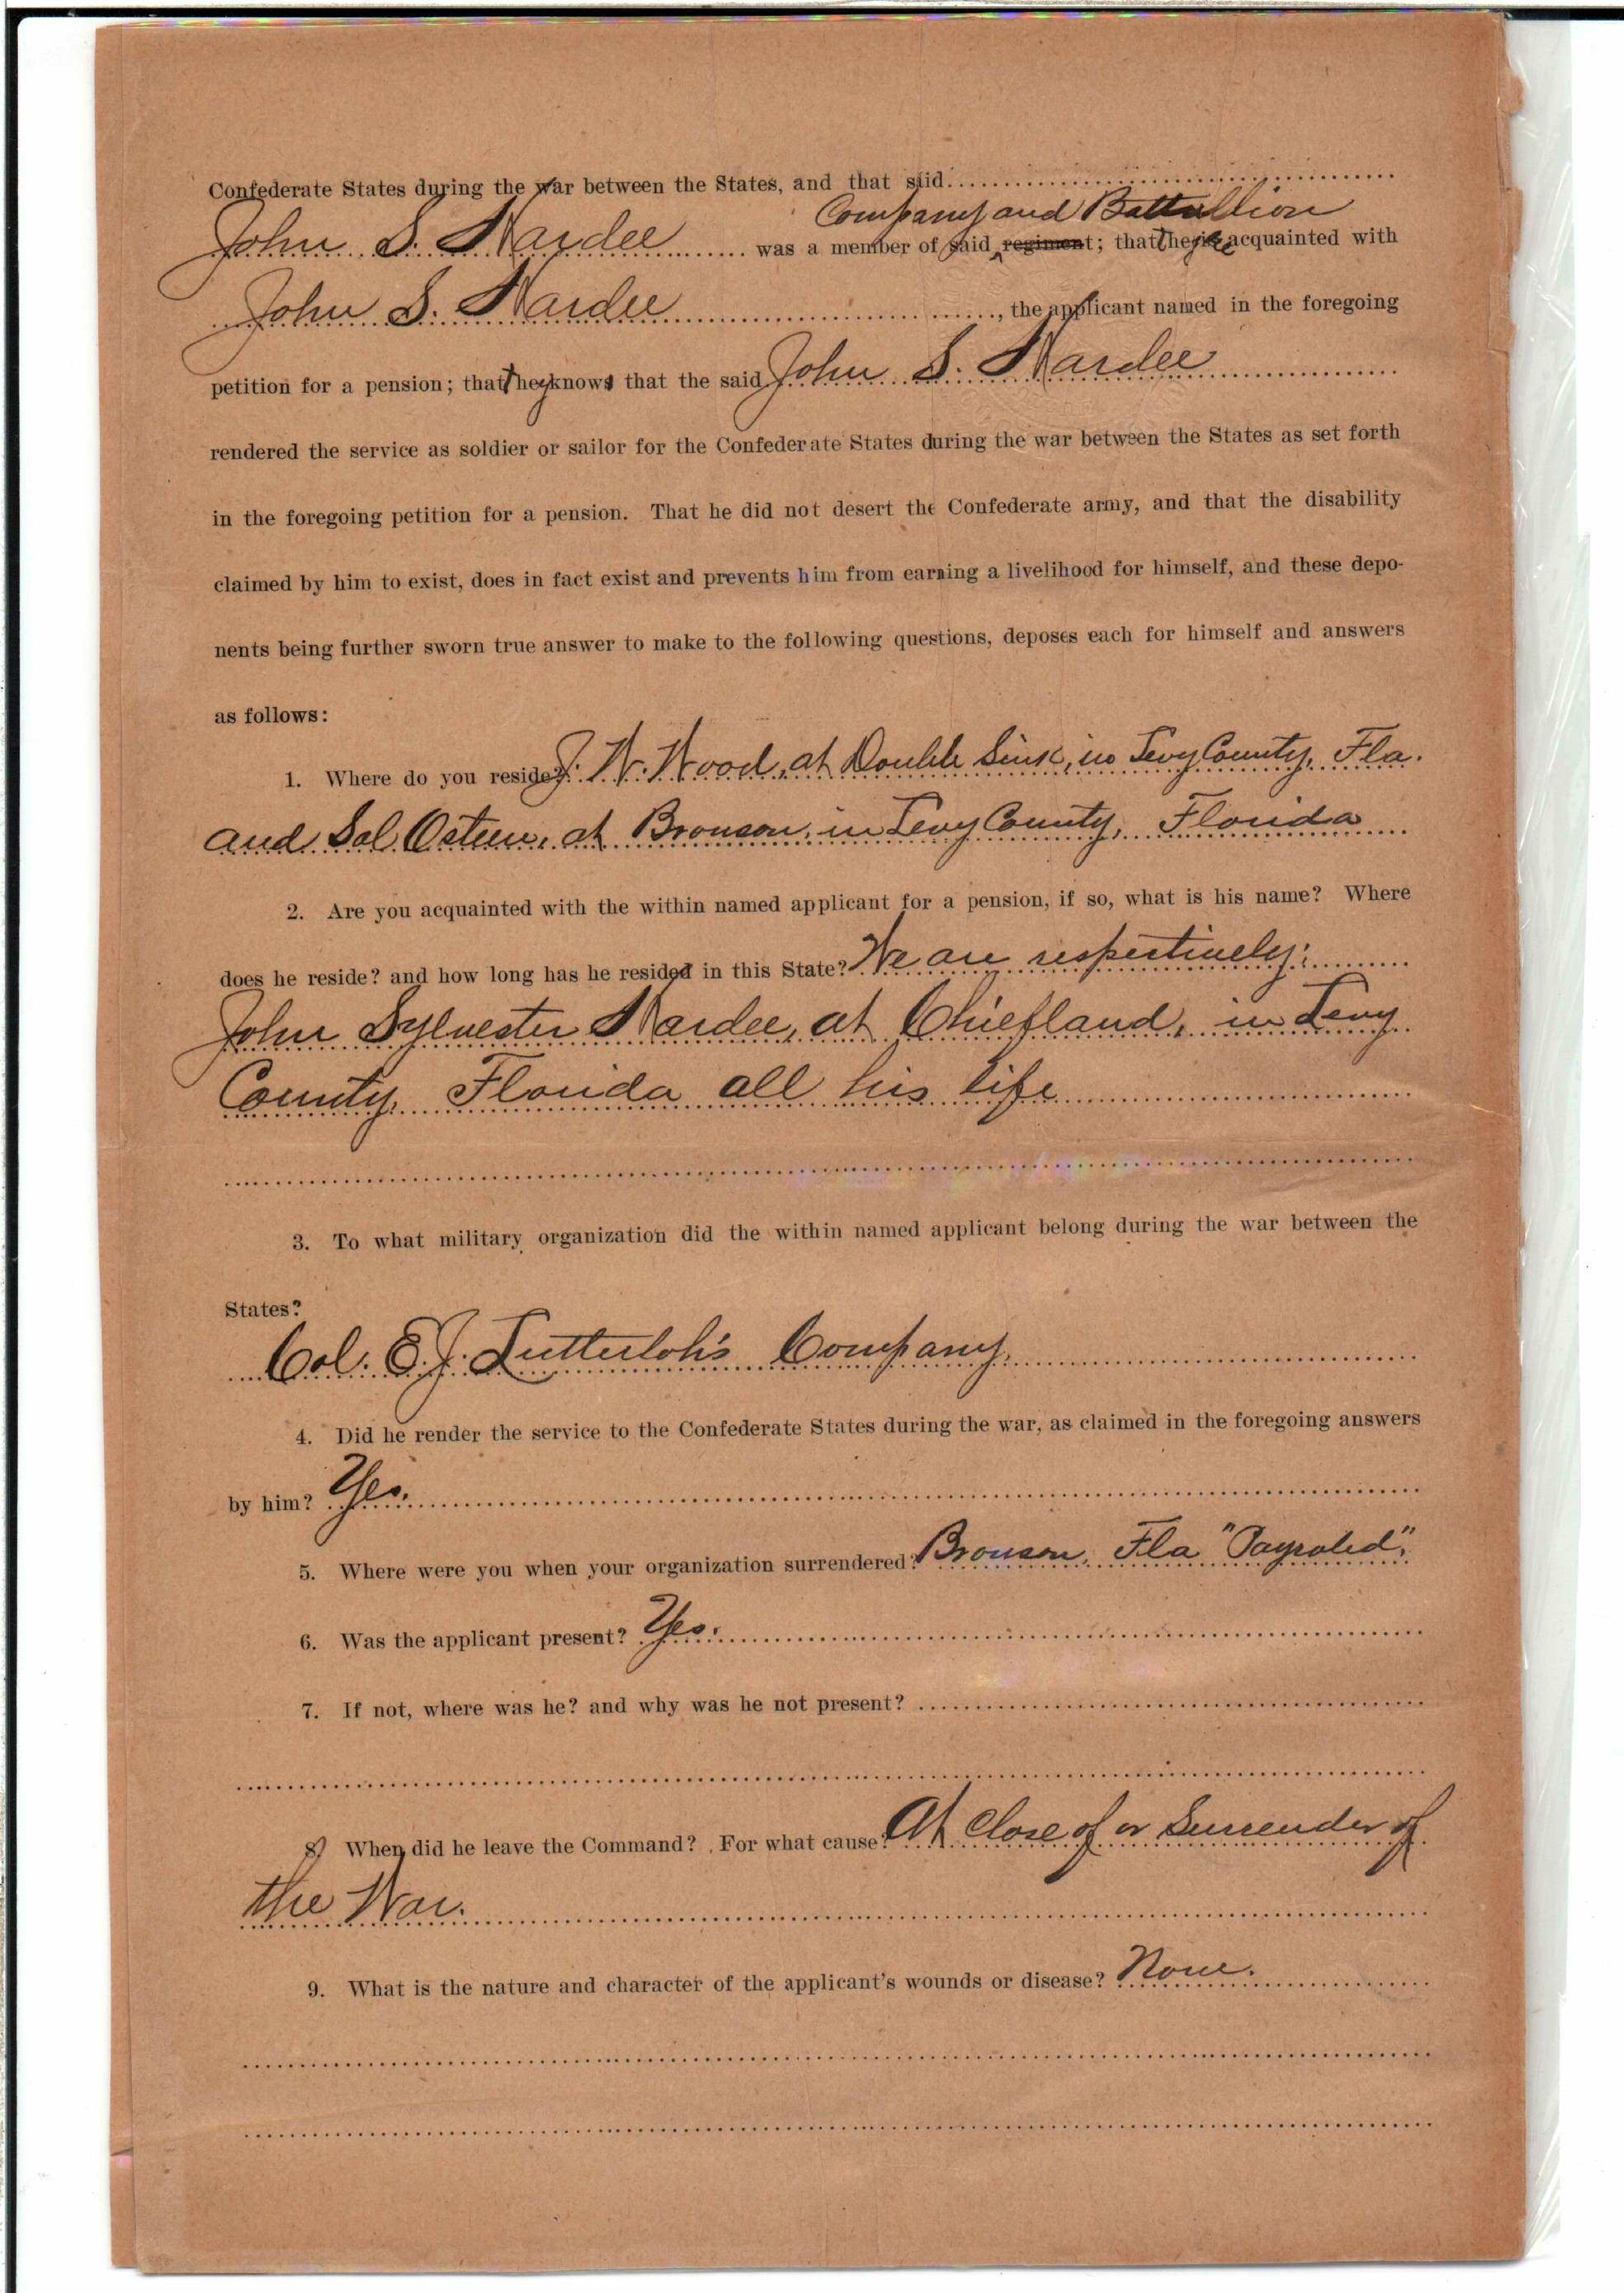 Confederate States during the war between the States, and that said
Company and Battallion
John S. Hardee was a member of said regiment; that they are acquainted with
John S. Hardee, the applicant named in the foregoing
petition for a pension; that they know that the said John S. Hardee
rendered the service as soldier or sailor for the Confederate States during the war between the States as set forth
in the foregoing petition for a pension. That he did not desert the Confederate army, and that the disability
claimed by him to exist, does in fact exist and prevents him from earning a livelihood for himself, and these depo-
nents being further sworn true answer to make to the following questions, deposes each for himself and answers
as follows:
1. Where do you reside? J. W. Wood, at Double Sink, in Levy County, Fla.
and Sol Osteen, at Bronson, in Levy County, Florida
2. Are you acquainted with the within named applicant for a pension, if so, what is his name? Where
does he reside? and how long has he resided in this State? We are respectively:
John Sylvester Hardee, at Chiefland, in Levy
County, Florida all his life
3. To what military organization did the within named applicant belong during the war between the
States?
Col. E. J. Lutterloh's Company.
4. Did he render the service to the Confederate States during the war, as claimed in the foregoing answers
by him? Yes.
5. Where were you when your organization surrendered? Bronson, Fla "Payroled".
6. Was the applicant present? Yes.
7. If not, where was he? and why was he not present?
8. When did he leave the Command? For what cause? At Close of or Surrender of
the War.
9. What is the nature and character of the applicant's wounds or disease? None.